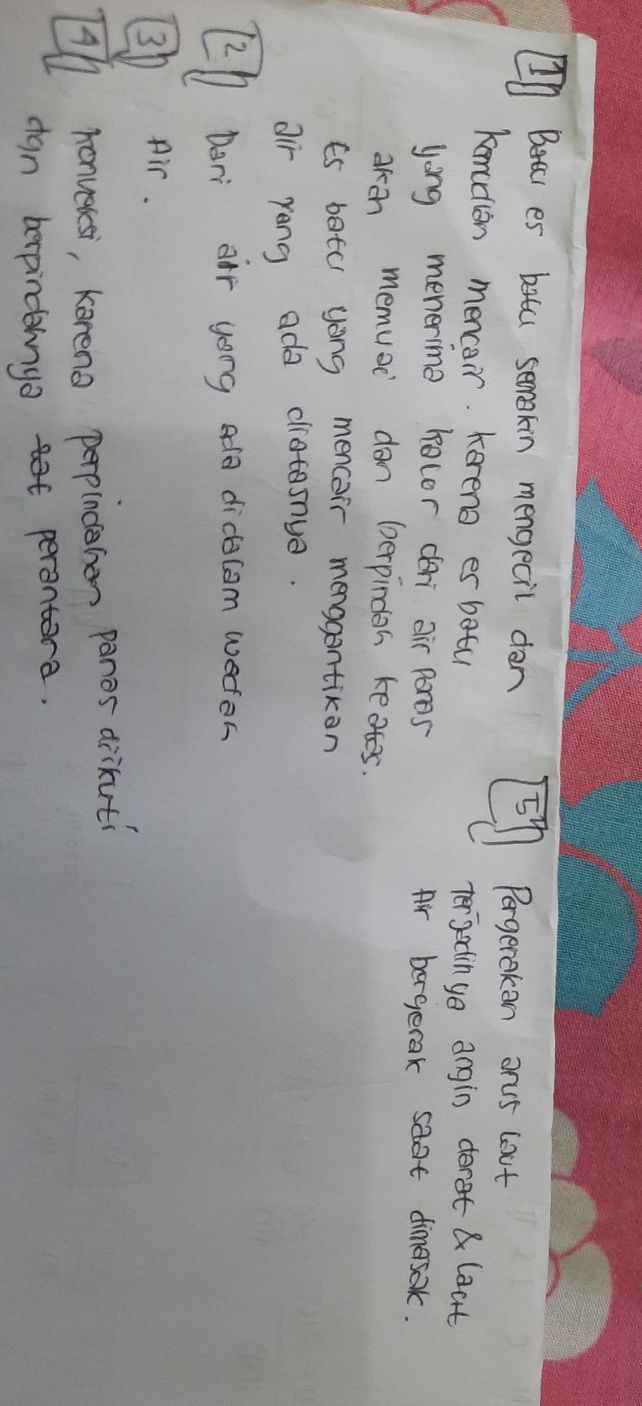 1 Batu es batu semakin mengecil dan
kemudian mencair. karena es batu
yang menerima kalor dari air panas
akan memuai dan berpindah ke atas.
Es batu yang mencair menggantikan
air yang ada diatasnya.
2 Dari air yang ada didalam wadah
3 Air.
4 konveksi, karena perpindahan panas diikuti
dgn berpindahnya zat perantara.
5 Pergerakan arus laut
Terjadinya angin darat & laut
Air bergerak saat dimasak.